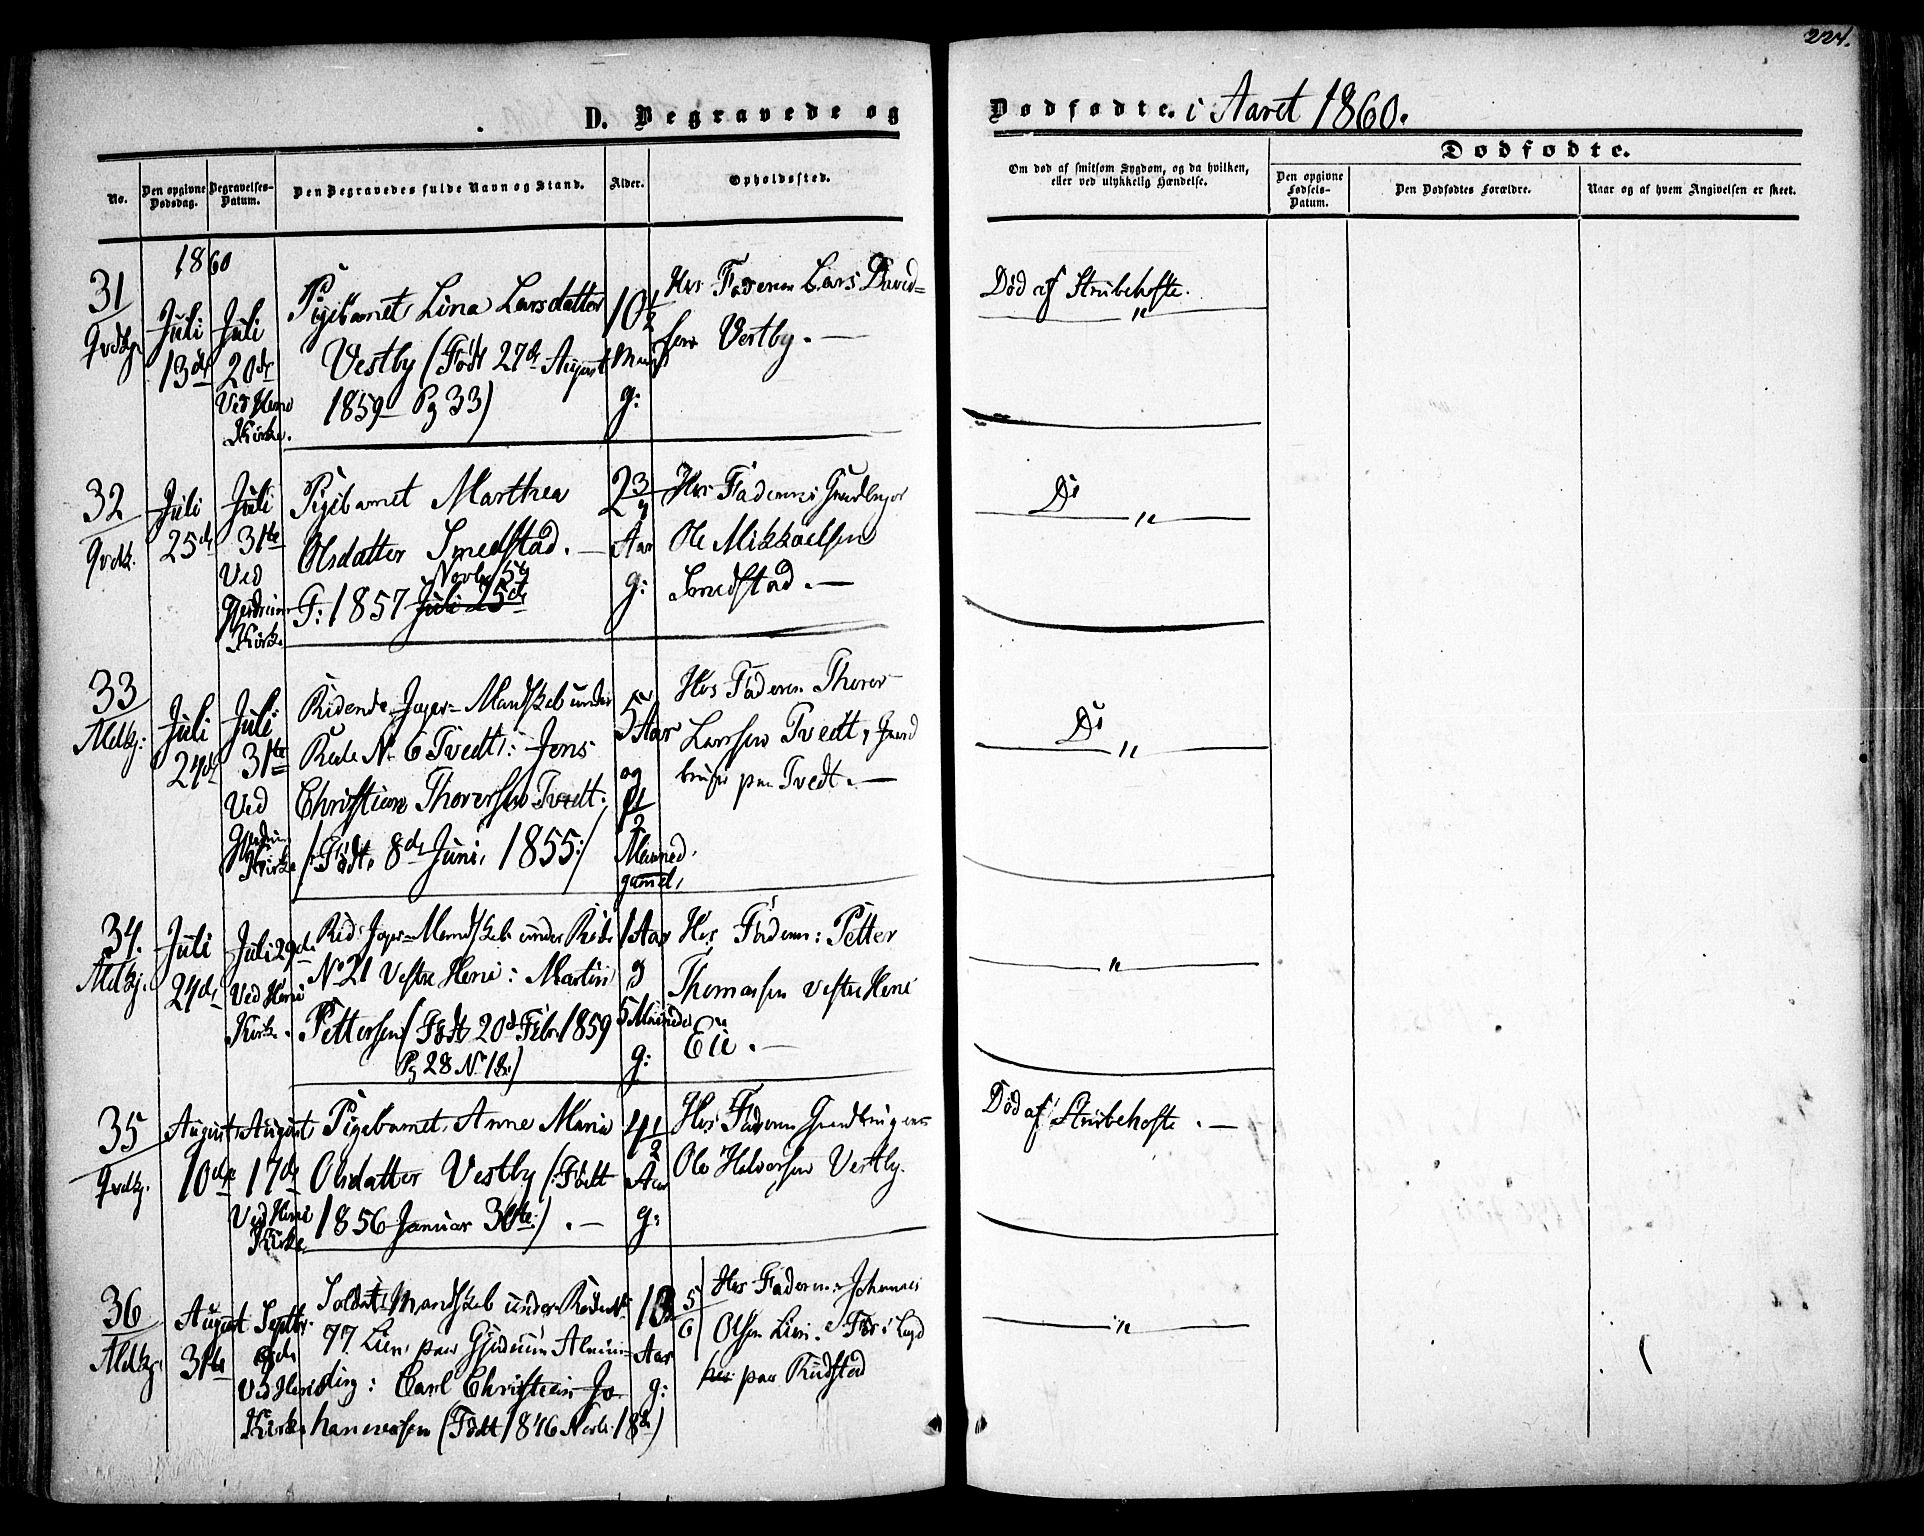 224.
D. Begravede og Dødfødte. i Aaret 1860.
No.
Den opgivne Dødsdag.
Begravelses-Datum.
Den Begravedes fulde Navn og Stand.
Alder.
Opholdssted.
Om død af smitsom Sygdom, og da hvilken,
eller ved ulykkelig Hændelse.
Dødfødte.
Den opgivne Fødsels-Datum.
Den Dødfødtes Forældre.
Naar og af hvem Angivelsen er skeet.
1860
31
Qvdkj.
Juli
13de
Juli
20de
Ved Heni
Kirke.
Pigebarnet Lina Larsdatter
Vestby (Født 27de August
1859 Pg 33)
10 1/2
g:
Hos Faderen Lars David-
sen Vestby. —
Død af Strubehoste.
"
32
Qvdk.
Juli
25de
Juli
31te
Ved
Gjerdrum
Kirk.
Pigebarnet Marthea
Olsdatter Smedstad. —
F: 1857 Juli 25de
2 3/4
Aar
g:
Hos Faderen
Ole Mikkaelsen
Smedstad. —
Do
"
33
Mdkj:
Juli
24de
Juli
31te
Ved
Kirke
Ridende Jæger-Mandskab under
Rode No 6 Tvedt: Jens
Christian Thorersen Tvedt:
/:Født 8de Juni, 1855:/
5 Aar
og
1 1/2
Maaned,
gamel,
Hos Faderen Thorer
Larssen Tvedt, Gaard
bruger paa Tvedt. —
Do
"
34.
Mdkj.
Juli
24de
Juli 29de
Ved Heni
Kirk.
Rid: Jæger-Mandskab under Rode
No 21 Vestre Heni: Martin
Pettersen (Født 20de Febr. 1859
Pg 28 No 18.)
1 Aar
5 Maaneder
g:
Hos Faderen: Petter
Thomassen vestre Heni
Eie. —
"
35
Qvdkj.
August
10de
August
17de
Ved Heni
Kirke
Pigebarnet Anne Maria
Olsdatter Vestby (:Født
1856 Januar :) . —
4 1/2
Aar
g:
Hos Faderen Gaardbruger
Ole Halvorsen Vestby.
Død af Strubehoste. —
36
Mdkj.
August
31te
Septbr.
Ved Heni
Kirke
Soldat Mandskab under Rode No
77 Lien paa Gjerdrum Almin-
ding: Carl Christian Jo-
hannessen (Født 1846 Novbr. 18de)
5/6
Aar
g:
Hos Faderen: Johannes
Olsen Lien. Før i
paa Rudstad
"